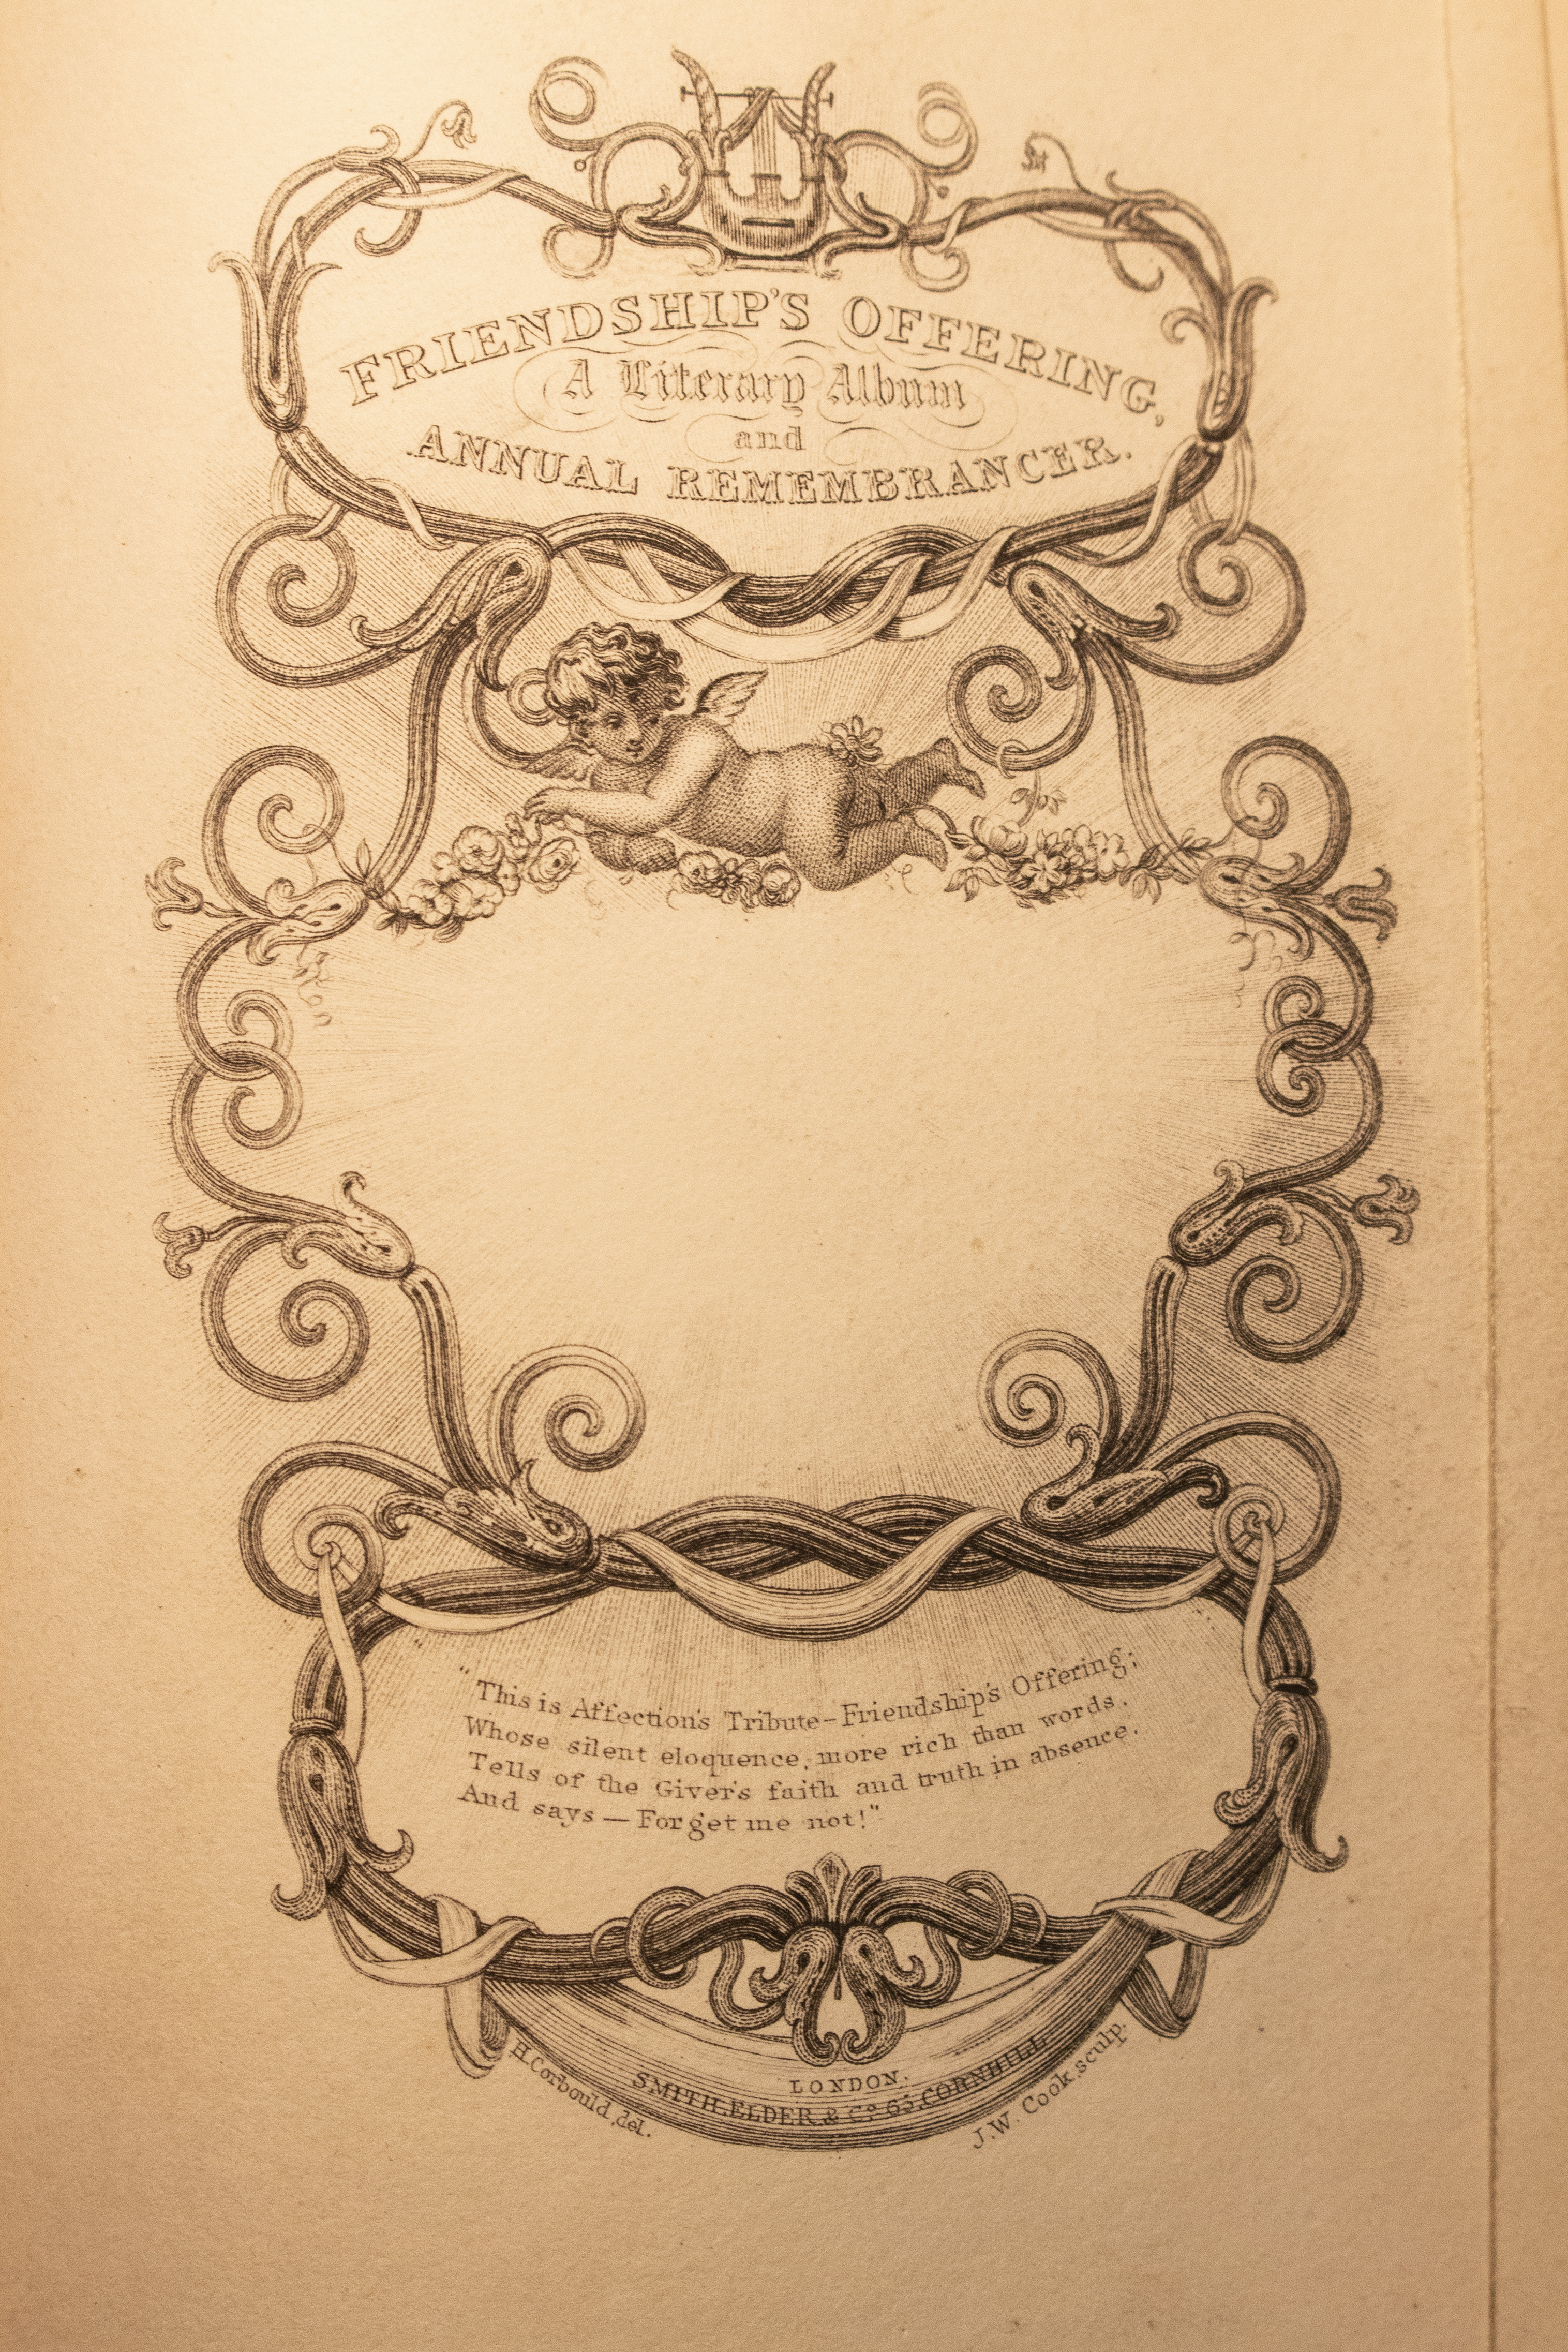 FRIENDSHIP'S OFFERING,
A Literary Album
and
ANNUAL REMEMBRANCER.
"This is Affection's Tribute-Friendship's Offering;
Whose silent eloquence, more rich than words,
Tells of the Giver's faith and truth in absence,
And says — Forget me not!"
LONDON.
SMITH, ELDER & Co. 65, CORNHILL.
H. Corbould, del.
J. W. Cook, sculp.